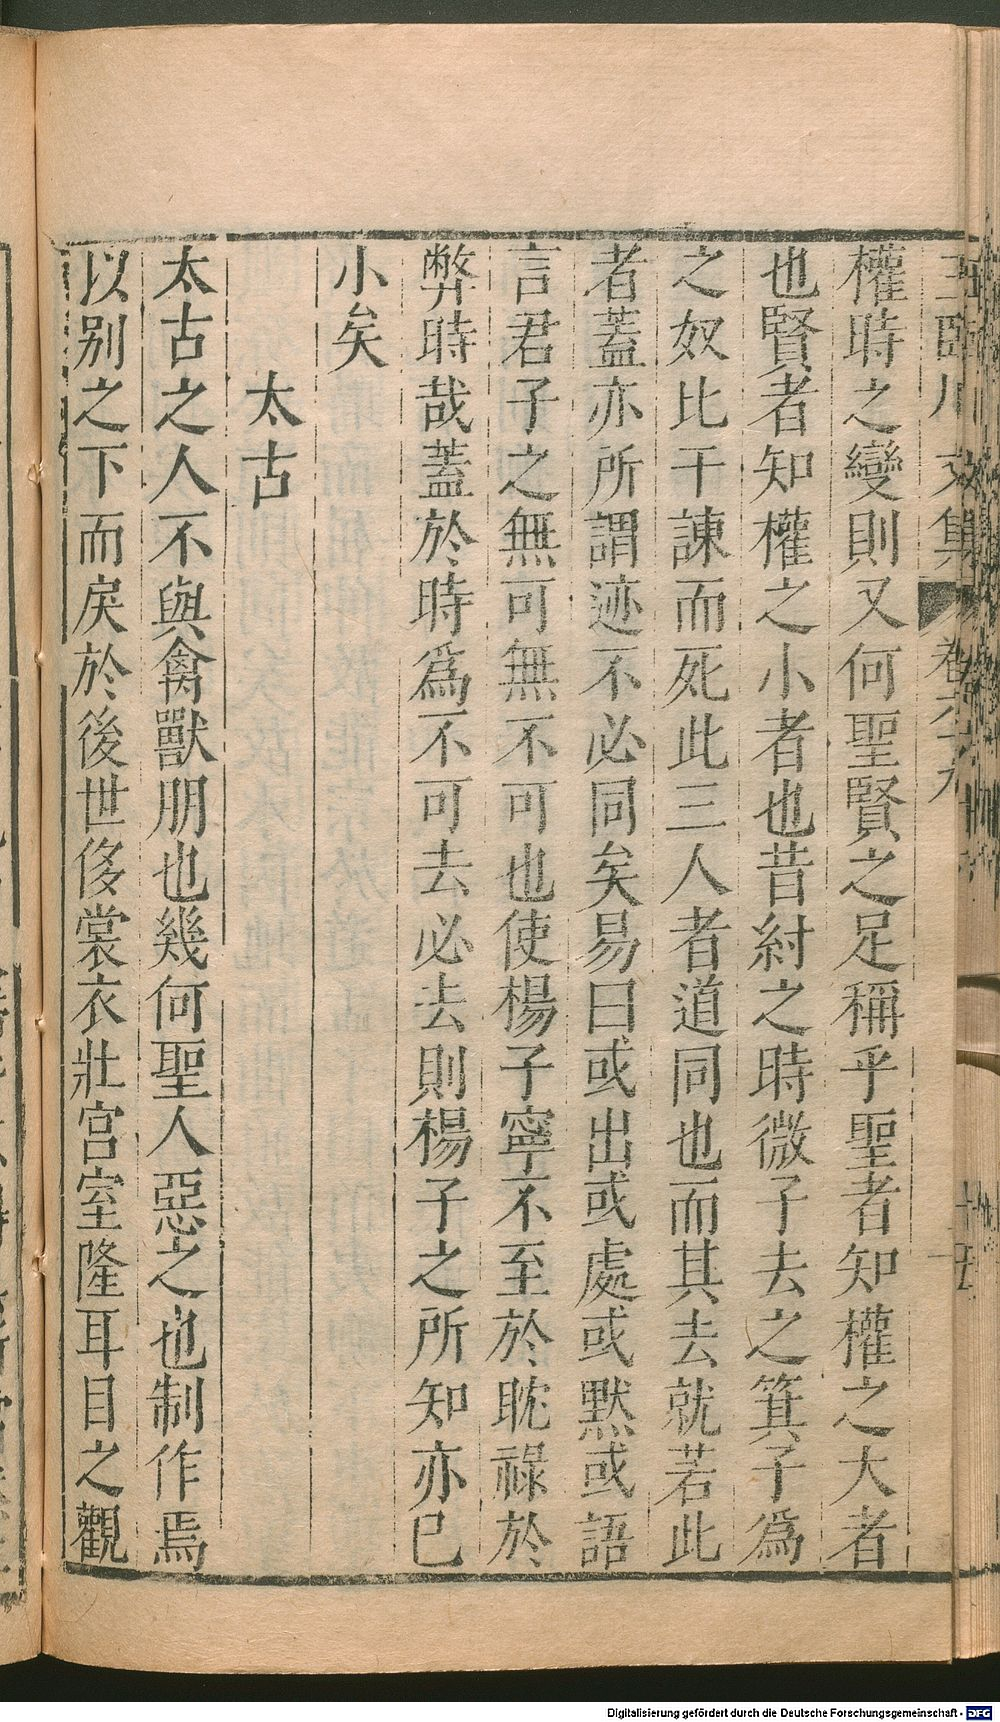 王臨川文集 卷六十九 十五
權時之變則又何聖賢之足稱乎聖者知權之大者
也賢者知權之小者也昔紂之時微子去之箕子爲
之奴比干諫而死此三人者道同也而其去就若此
者蓋亦所謂迹不必同矣易曰或出或處或默或語
言君子之無可無不可也使楊子寧不至於耽祿於
弊時哉蓋於時爲不可去必去則楊子之所知亦已
小矣
太古
太古之人不與禽獸朋也幾何聖人惡之也制作焉
以别之下而戾於後世侈裳衣壯宫室隆耳目之觀
Digitalisierung gefördert durch die Deutsche Forschungsgemeinschaft - DFG